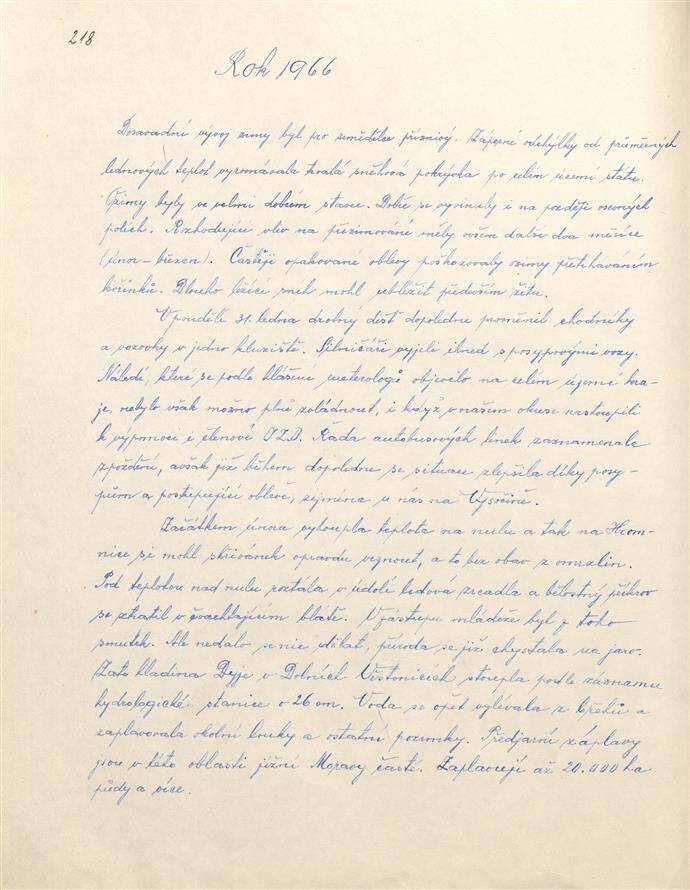 218
Rok 1966
Dosavadní vývoj zimy byl pro zemědělce příznivý. Záporné odchylky od průměrných
lednových teplot vyrovnávala trvalá sněhová pokrývka po celém území státu.
Ozimy byly ve velmi dobrém stavu. Dobře se vyvinuly i na později osených
polích. Rozhodující vliv na přezimování měly ovšem další dva měsíce
(únor-březen). Častěji opakované oblevy poškozovaly ozimy přetrháváním
kořínků. Dlouho ležící sníh mohl ublížit především žitu.
V pondělí 31. ledna drobný déšť dopoledne proměnil chodníky
a vozovky v jedno kluziště. Silničáři vyjeli ihned s posypovými vozy.
Náledí, které se podle hlášení meterologů objevilo na celém území kra-
je, nebylo však možno plně zvládnout, i když v našem okrese nastoupili
k výpomoci i členové JZD. Řada autobusových linek zaznamenala
zpoždění, avšak již během dopoledne se situace zlepšila díky posy-
pům a postupující oblevě, zejména u nás na Vysočině.
Začátkem února vystoupla teplota na nulu a tak na Hrom-
nice si mohl skřivánek opravdu vrznout, a to bez obav z omrzlin.
Pod teplotou nad nulu roztála v údolí ledová zrcadla a bělostný příkrov
se ztratil v čvachtajícím blátě. V zástupu mládeže byl z toho
smutek. Ale nedalo se nic dělat, příroda se již chystala na jaro.
Zato hladina Dyje v Dolních Věstonicích stoupla podle záznamu
hydrologické stanice o 26 cm. Voda se opět vylévala z břehů a
zaplavovala okolní louky a ostatní pozemky. Předjarní záplavy
jsou v této oblasti jižní Moravy časté. Zaplavují až 20.000 ha
půdy a více.